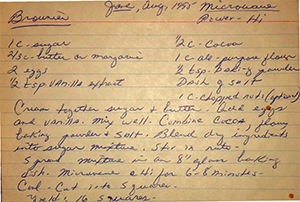 Brownies June, Aug, 1995 Microwave
Power - Hi
1 c - sugar 1/2 c - Cocoa
2/3 c - butter or margarine 1 c all-purpose flour
2 eggs 1/2 tsp. baking powder
1/2 tsp vanilla extract Dash of salt
1 c - chopped nuts (optional)
Cream together sugar & butter. Add eggs
and vanilla. Mix well. Combine cocoa, flour
baking powder & salt. Blend dry ingredients
into sugar mixture. Stir in nuts.
Spread mixture in an 8" glass baking
dish. Microwave @ Hi for 6-8 minutes.
Cool - Cut into squares.
Yield: 16 squares.